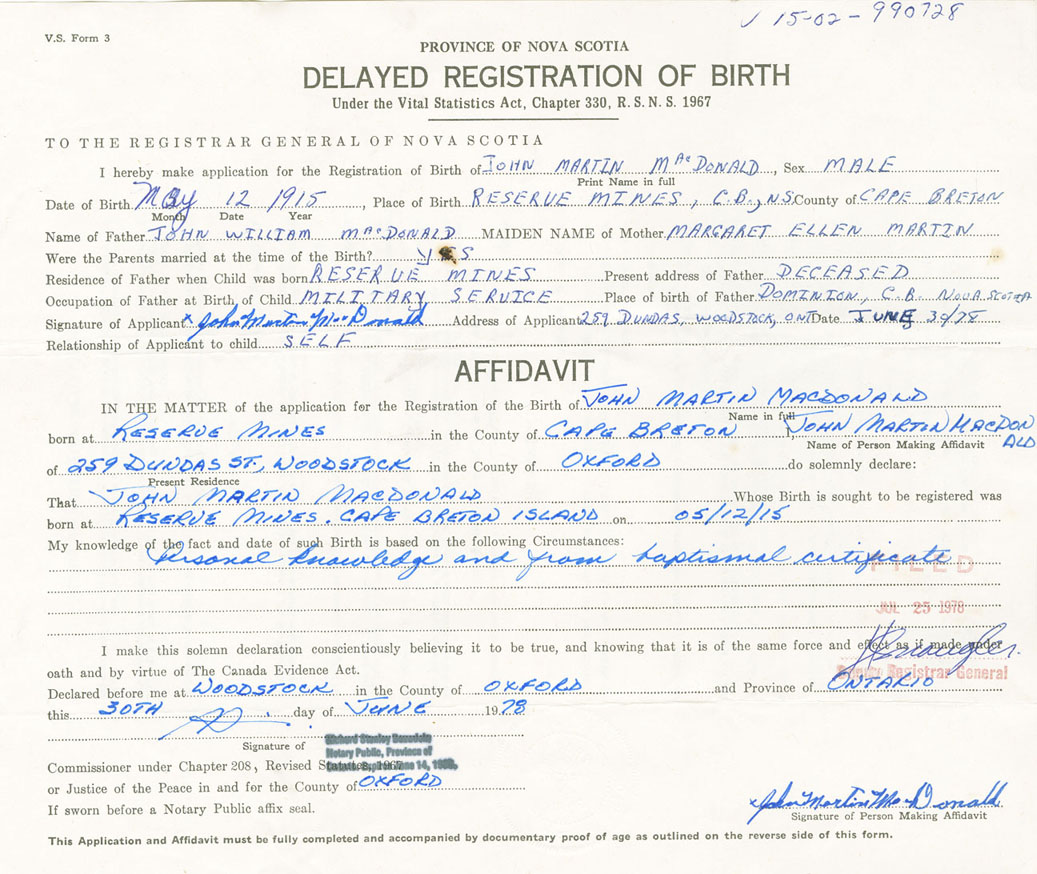 ✓ 15-02-990728
V.S. Form 3
PROVINCE OF NOVA SCOTIA
DELAYED REGISTRATION OF BIRTH
Under the Vital Statistics Act, Chapter 330, R.S.N.S. 1967
TO THE REGISTRAR GENERAL OF NOVA SCOTIA
I hereby make application for the Registration of Birth of JOHN MARTIN MacDONALD, Sex MALE
Print Name in full
Date of Birth May 12 1915, Place of Birth RESERVE MINES, C.B., N.S. County of CAPE BRETON
Month Date Year
Name of Father JOHN WILLIAM MacDONALD MAIDEN NAME of Mother MARGARET ELLEN MARTIN
Were the Parents married at the time of the Birth? YES
Residence of Father when Child was born RESERVE MINES Present address of Father DECEASED
Occupation of Father at Birth of Child MILITARY SERVICE Place of birth of Father DOMINION, C.B. NOVA SCOTIA
Signature of Applicant x John Martin MacDonald Address of Applicant 259 DUNDAS, WOODSTOCK, ONT Date JUNE 30/78
Relationship of Applicant to child SELF
AFFIDAVIT
IN THE MATTER of the application for the Registration of the Birth of JOHN MARTIN MACDONALD
Name in full
born at RESERVE MINES in the County of CAPE BRETON, JOHN MARTIN MACDONALD
Name of Person Making Affidavit
of 259 DUNDAS ST., WOODSTOCK in the County of OXFORD do solemnly declare:
Present Residence
That JOHN MARTIN MACDONALD Whose Birth is sought to be registered was
born at RESERVE MINES, CAPE BRETON ISLAND on 05/12/15
My knowledge of the fact and date of such Birth is based on the following Circumstances:
Personal knowledge and from baptismal certificate
FILED
JUL 25 1978
I make this solemn declaration conscientiously believing it to be true, and knowing that it is of the same force and effect as if made under
oath and by virtue of The Canada Evidence Act.
Deputy Registrar General
Declared before me at WOODSTOCK in the County of OXFORD and Province of ONTARIO
this 30TH day of JUNE 1978
Signature of
Richard Stanley
Notary Public, Province of
Commissioner under Chapter 208, Revised Statutes, 1967
or Justice of the Peace in and for the County of OXFORD
If sworn before a Notary Public affix seal.
x John Martin MacDonald
Signature of Person Making Affidavit
This Application and Affidavit must be fully completed and accompanied by documentary proof of age as outlined on the reverse side of this form.